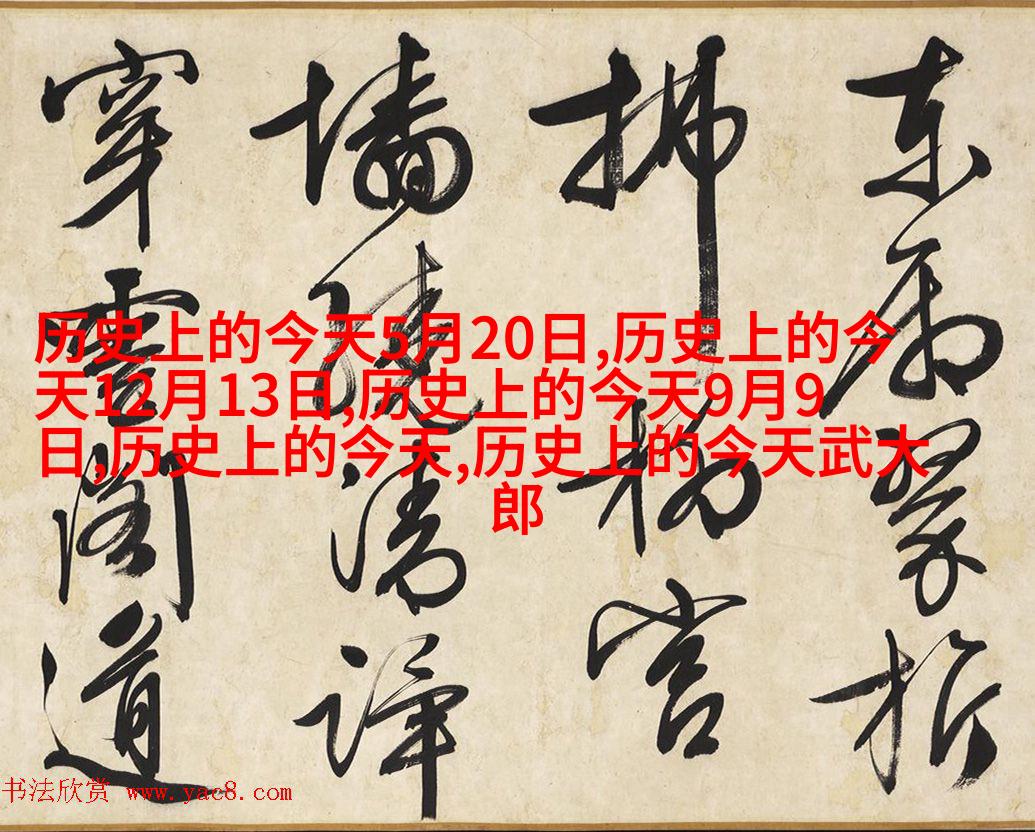 东
拂宫
墙绕清
穿雲阁道
历史上的今天5月20日,历史上的今
天12月13日,历史上的今天9月9
日,历史上的今天,历史上的今天武大
郎
书法欣赏 www.yac8.com